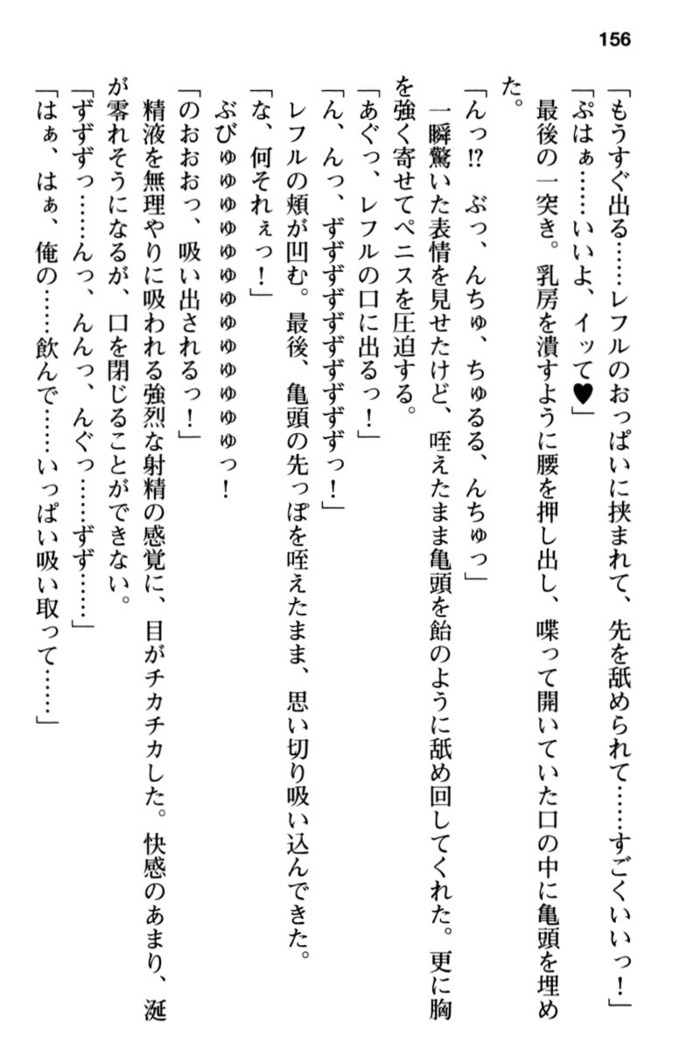 156
「もうすぐ出る……レフルのおっぱいに挟まれて、先を舐められて……すごくいいっ！」
「ぷはぁ……いいよ、イッて♥」
　最後の一突き。乳房を潰すように腰を押し出し、喋って開いていた口の中に亀頭を埋め
た。
「んっ!?　ぶっ、んちゅ、ちゅるる、んちゅっ」
　一瞬驚いた表情を見せたけど、咥えたまま亀頭を飴のように舐め回してくれた。更に胸
を強く寄せてペニスを圧迫する。
「あぐっ、レフルの口に出るっ！」
「ん、んっ、ずずずずずずずずずっ！」
　レフルの頬が凹む。最後、亀頭の先っぽを咥えたまま、思い切り吸い込んできた。
「な、何それぇっ！」
　ぶびゅゅゅゅゅゅゅゅゅゅゅっ！
「のおおおっ、吸い出されるっ！」
　精液を無理やりに吸われる強烈な射精の感覚に、目がチカチカした。快感のあまり、涎
が零れそうになるが、口を閉じることができない。
「ずずずっ……んっ、んんっ、んぐっ……ずず……」
「はぁ、はぁ、俺の……飲んで……いっぱい吸い取って……」